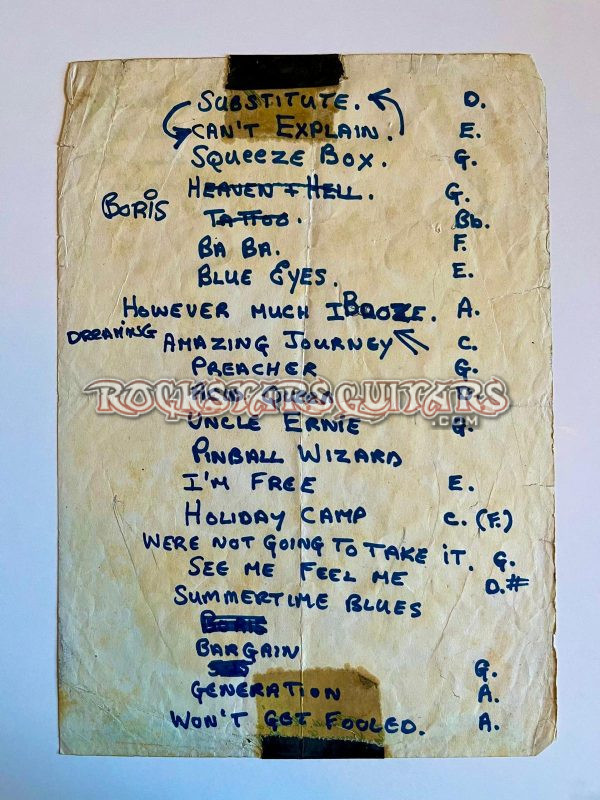 SUBSTITUTE. D.
CAN'T EXPLAIN. E.
SQUEEZE BOX. G.
HEAVEN & HELL. G.
BORIS TATTOO. Bb.
BA BA. F.
BLUE EYES. E.
HOWEVER MUCH I BOOZE. A.
DREAMING AMAZING JOURNEY C.
PREACHER G.
ACID QUEEN D.
ROCKSTARSGUITARS
.COM
UNCLE ERNIE G.
PINBALL WIZARD
I'M FREE E.
HOLIDAY CAMP C. (F.)
WERE NOT GOING TO TAKE IT. G.
SEE ME FEEL ME D.#
SUMMERTIME BLUES
BORIS
BARGAIN
G.
GENERATION A.
WON'T GET FOOLED. A.